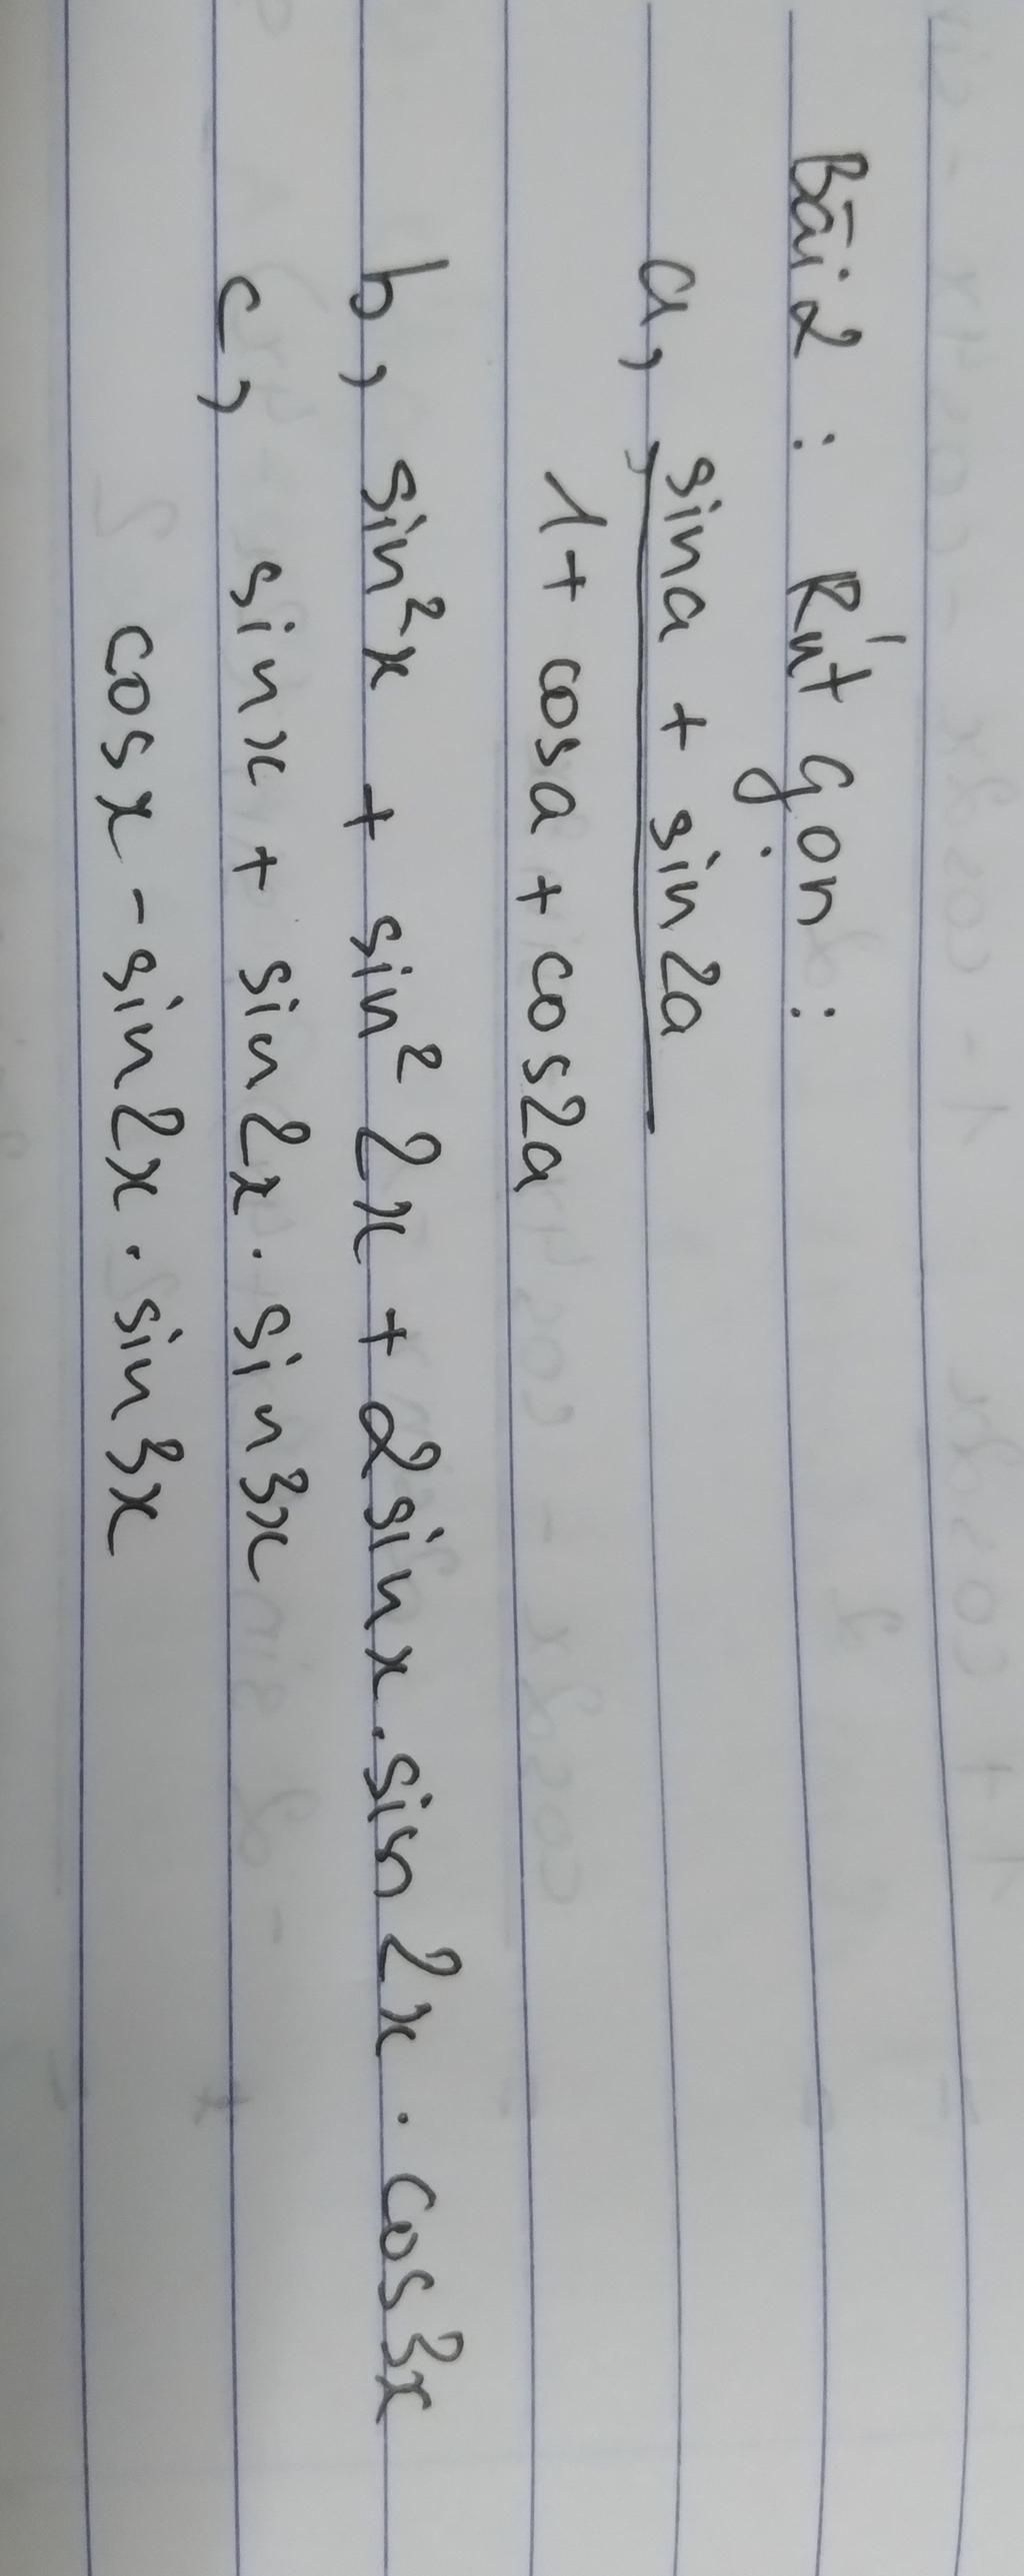 Bài 2 : Rút gọn :
a, sina + sin 2a
1 + cosa + cos2a
b, sin²x + sin² 2x + 2sinx.sin 2x . cos3x
c, sinx + sin2x . sin3x
cosx - sin2x . sin3x